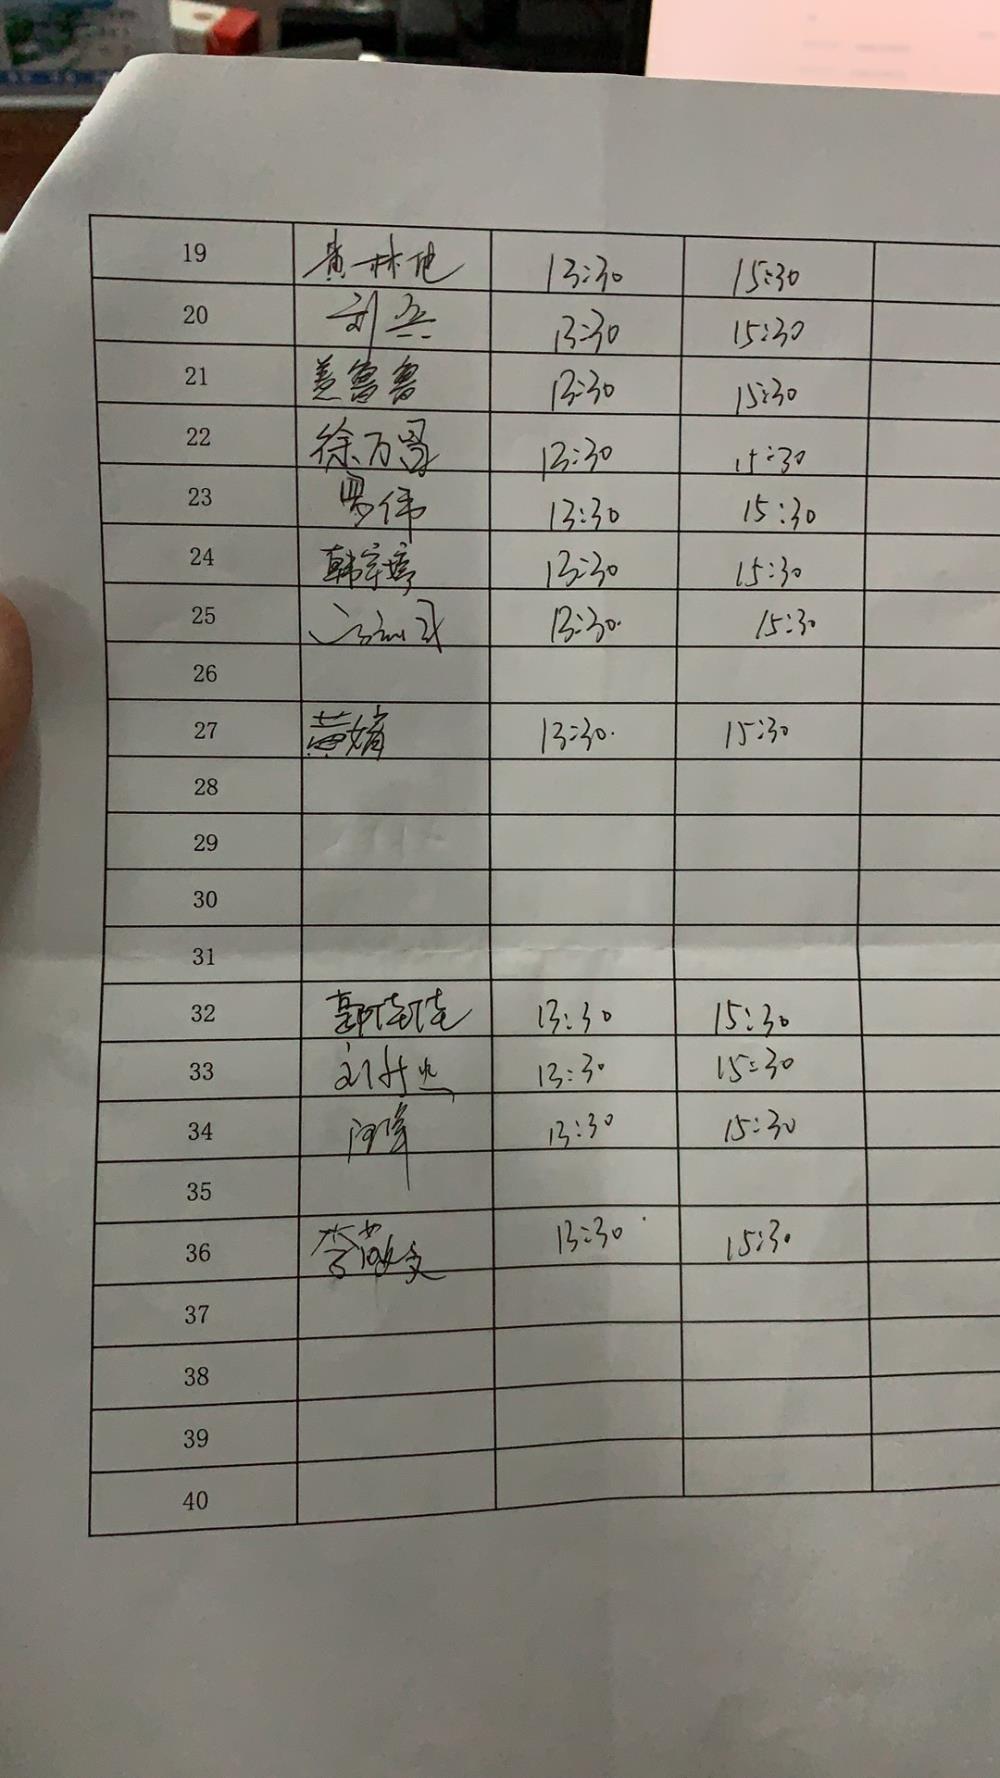 19 黄林艳 13:30 15:30
20 刘兵 13:30 15:30
21 姜鲁鲁 13:30 15:30
22 徐万 13:30 15:30
23 罗伟 13:30 15:30
24 韩宗婷 13:30 15:30
25 13:30 15:30
26
27 黄婧 13:30 15:30
28
29
30
31
32 郭佳佳 13:30 15:30
33 13:30 15:30
34 13:30 15:30
35
36 李 13:30 15:30
37
38
39
40